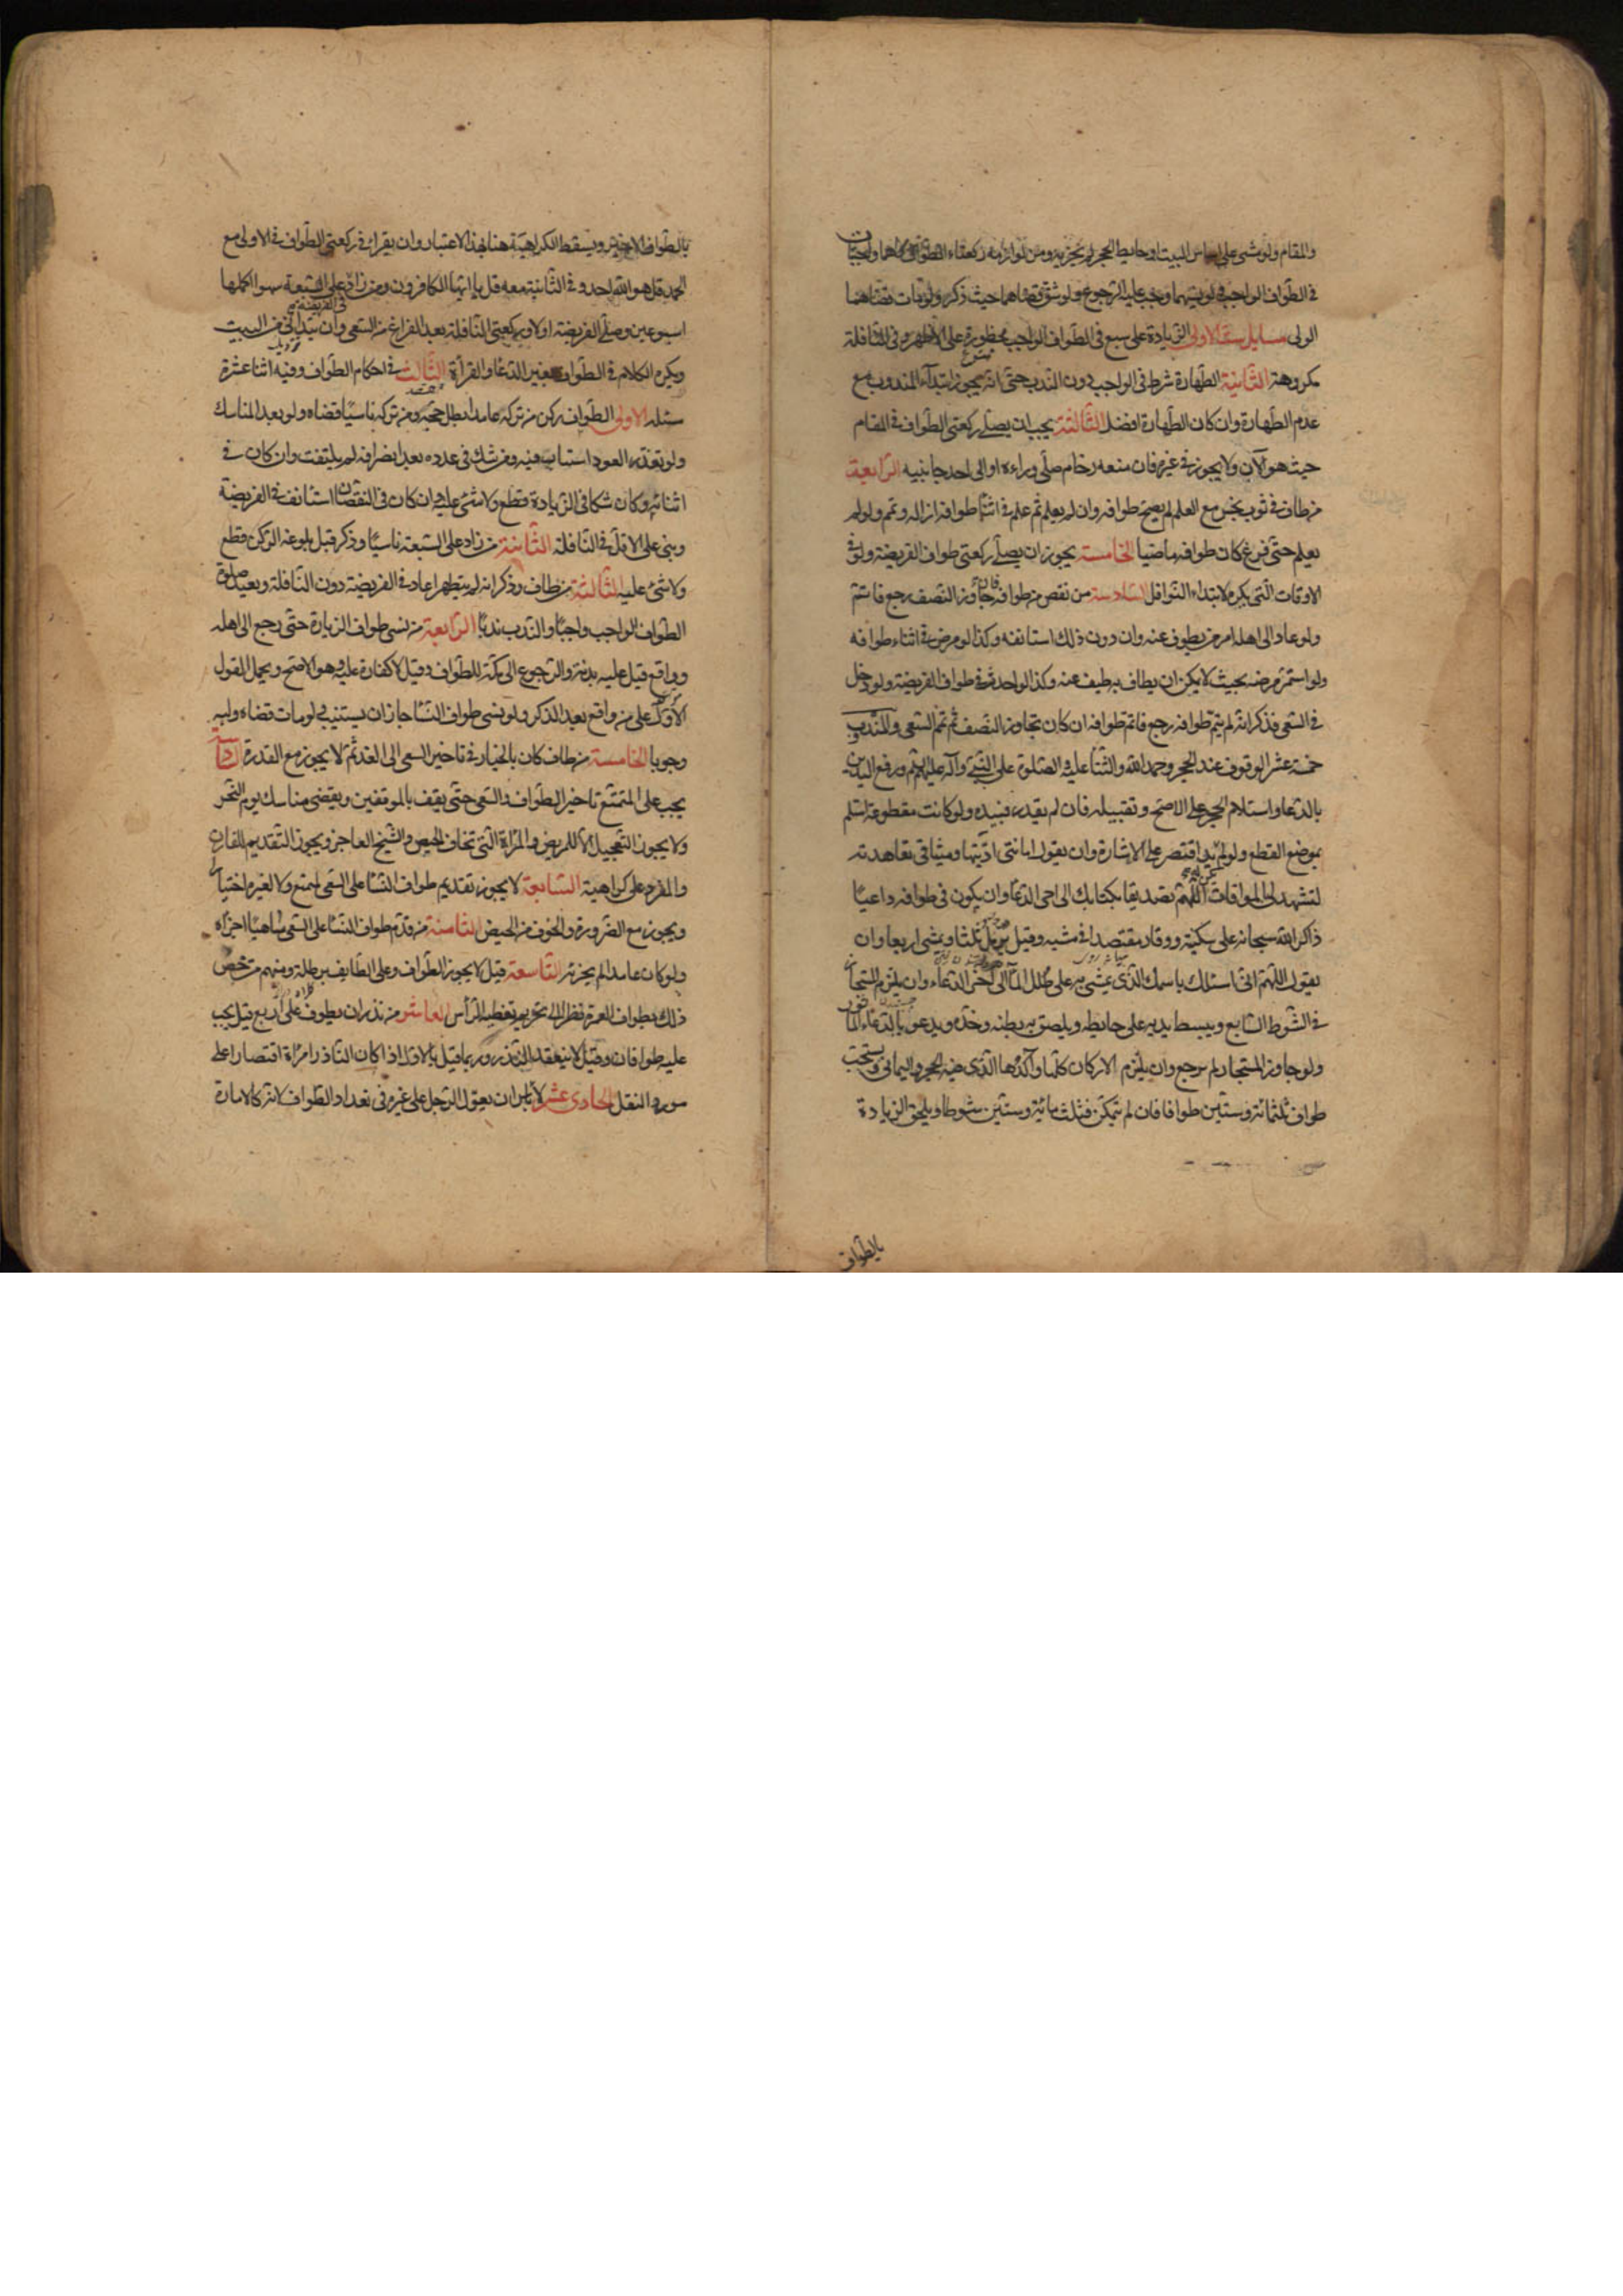 والمقام ولو مشى على اساس البيت او حايط الحجر لم يجزيه ومن لوازمه ركعتاء الطواف وهما واجبتان
في الطواف الواجب ولو نسيهما وجب عليه الرجوع ولو شق قضاهما حيث ذكر ولو مات قضاهما
الولى مسايل ست الاولى الزيادة على سبع فى الطواف الواجب محظورة على الاظهر وفى النافلة
مكروهة الثانية الطهارة شرط فى الواجب دون الندب حتى انه يجوز ابتداء المندوب مع
عدم الطهارة وان كان الطهارة افضل الثالثة يجب ان يصلى ركعتى الطواف فى المقام
حيث هو الآن ولا يجوز فى غيره فان منعه زحام صلى وراءه او الى احد جانبيه الرابعة
من طاف فى ثوب نجس مع العلم لم يصح طوافه وان لم يعلم ثم علم فى اثناء طوافه ازاله وتمم ولو لم
يعلم حتى فرغ كان طوافه ماضيا الخامسة يجوز ان يصلى ركعتى طواف الفريضة ولو فى
الاوقات التى يكره لابتداء النوافل السادسة من نقص من طوافه فان جاوز النصف رجع فاتم
ولو عاد الى اهله امر من يطوف عنه وان دون ذلك استانفه وكذا لو مرض فى اثناء طوافه
ولو استمر مرضه بحيث لا يمكن ان يطاف به طيف عنه وكذا لو احدث فى طواف الفريضة ولو دخل
فى السعى فذكر انه لم يتم طوافه رجع فاتم طوافه ان كان تجاوز النصف ثم تمم السعى والندب
خمسة عشر الوقوف عند الحجر وحمد الله والثناء عليه والصلوة على النبى وآله عليهم السلم ورفع اليدين
بالدعا واستلام الحجر على الاصح وتقبيله فان لم يقدر فبيده ولو كانت مقطوعة استلم
بموضع القطع ولو لم يكن له يد اقتصر على الاشارة وان يقول امانتى اديتها وميثاقى تعاهدته
لتشهد لى بالموافاة اللهم تصديقا بكتابك الى آخر الدعا وان يكون فى طوافه داعيا
ذاكر الله سبحانه على سكينة ووقار مقتصدا فى مشيه وقيل يرمل ثلثا ويمشى اربعا وان
يقول اللهم انى اسئلك باسمك الذى يمشى به على طلل الماء الى آخر الدعاء وان يلتزم المستجار
فى الشوط السابع ويبسط يديه على حايطه ويلصق به بطنه وخده ويدعو بالدعاء الماثور
ولو جاوز المستجار لم يرجع وان يلتزم الاركان كلها وآكدها الذى فيه الحجر واليمانى ويستحب
طواف ثلثمائة وستين طوافا فان لم يتمكن فثلث مائة وستين شوطا ويلحق الزيادة
بالطواف
بالطواف الاخير ويسقط الكراهية هنا بهذا الاعتبار وان يقرا فى ركعتى الطواف فى الاولى مع
الحمد قل هو الله احد وفى الثانية معه قل يا ايها الكافرون ومن زاد على السبعة سهوا اكملها
اسبوعين وصلى الفريضة اولا وركعتى النافلة بعد الفراغ من السعى وان يتدانى من البيت
ويكره الكلام فى الطواف بغير الدعا والقرأة الثالث فى احكام الطواف وفيه اثنا عشرة
مسئلة الاولى الطواف ركن من تركه عامدا بطل حجه ومن تركه ناسيا قضاه ولو بعد المناسك
ولو تعذر العود استناب فيه ومن شك فى عدده بعد انصرافه لم يلتفت وان كان فى
اثنائه وكان شكا فى الزيادة قطع ولا شئ عليه وان كان فى النقصان استانف فى الفريضة
وبنى على الاقل فى النافلة الثانية من زاد على السبعة ناسيا وذكر قبل بلوغه الركن قطع
ولا شئ عليه الثالثة من طاف وذكر انه لم يتطهر اعاد فى الفريضة دون النافلة ويعيد صلوة
الطواف الواجب واجبا والندب ندبا الرابعة من نسى طواف الزيارة حتى رجع الى اهله
وواقع قيل عليه بدنة والرجوع الى مكة للطواف وقيل لا كفارة عليه وهو الاصح ويحمل القول
الاول على من واقع بعد الذكر ولو نسى طواف النسا جاز ان يستنيب ولو مات قضاه وليه
وجوبا الخامسة من طاف كان بالخيار فى تاخير السعى الى الغد ثم لا يجوز مع القدرة السادسة
يجب على المتمتع تاخير الطواف والسعى حتى يقف بالموقفين ويقضى مناسك يوم النحر
ولا يجوز التعجيل الا للمريض والمرأة التى تخاف الحيض والشيخ العاجز ويجوز التقديم للقارن
والمفرد على كراهية السابعة لا يجوز تقديم طواف النسا على السعى لمتمتع ولا لغيره اختيارا
ويجوز مع الضرورة والخوف من الحيض الثامنة من قدم طواف النسا على السعى ساهيا اجزاه
ولو كان عامدا لم يجزئه التاسعة قيل لا يجوز الطواف وعلى الطايف برطلة ومنهم من خص
ذلك بطواف العمرة نظرا الى تحريم تغطية الرأس العاشر من نذر ان يطوف على اربع قيل يجب
عليه طوافان وقيل لا ينعقد النذر وربما قيل بالاول اذا كان الناذر امرأة اقتصارا على
مورد النقل الحادى عشر لا باس ان يعول الرجل على غيره فى تعداد الطواف لانه كالامارة